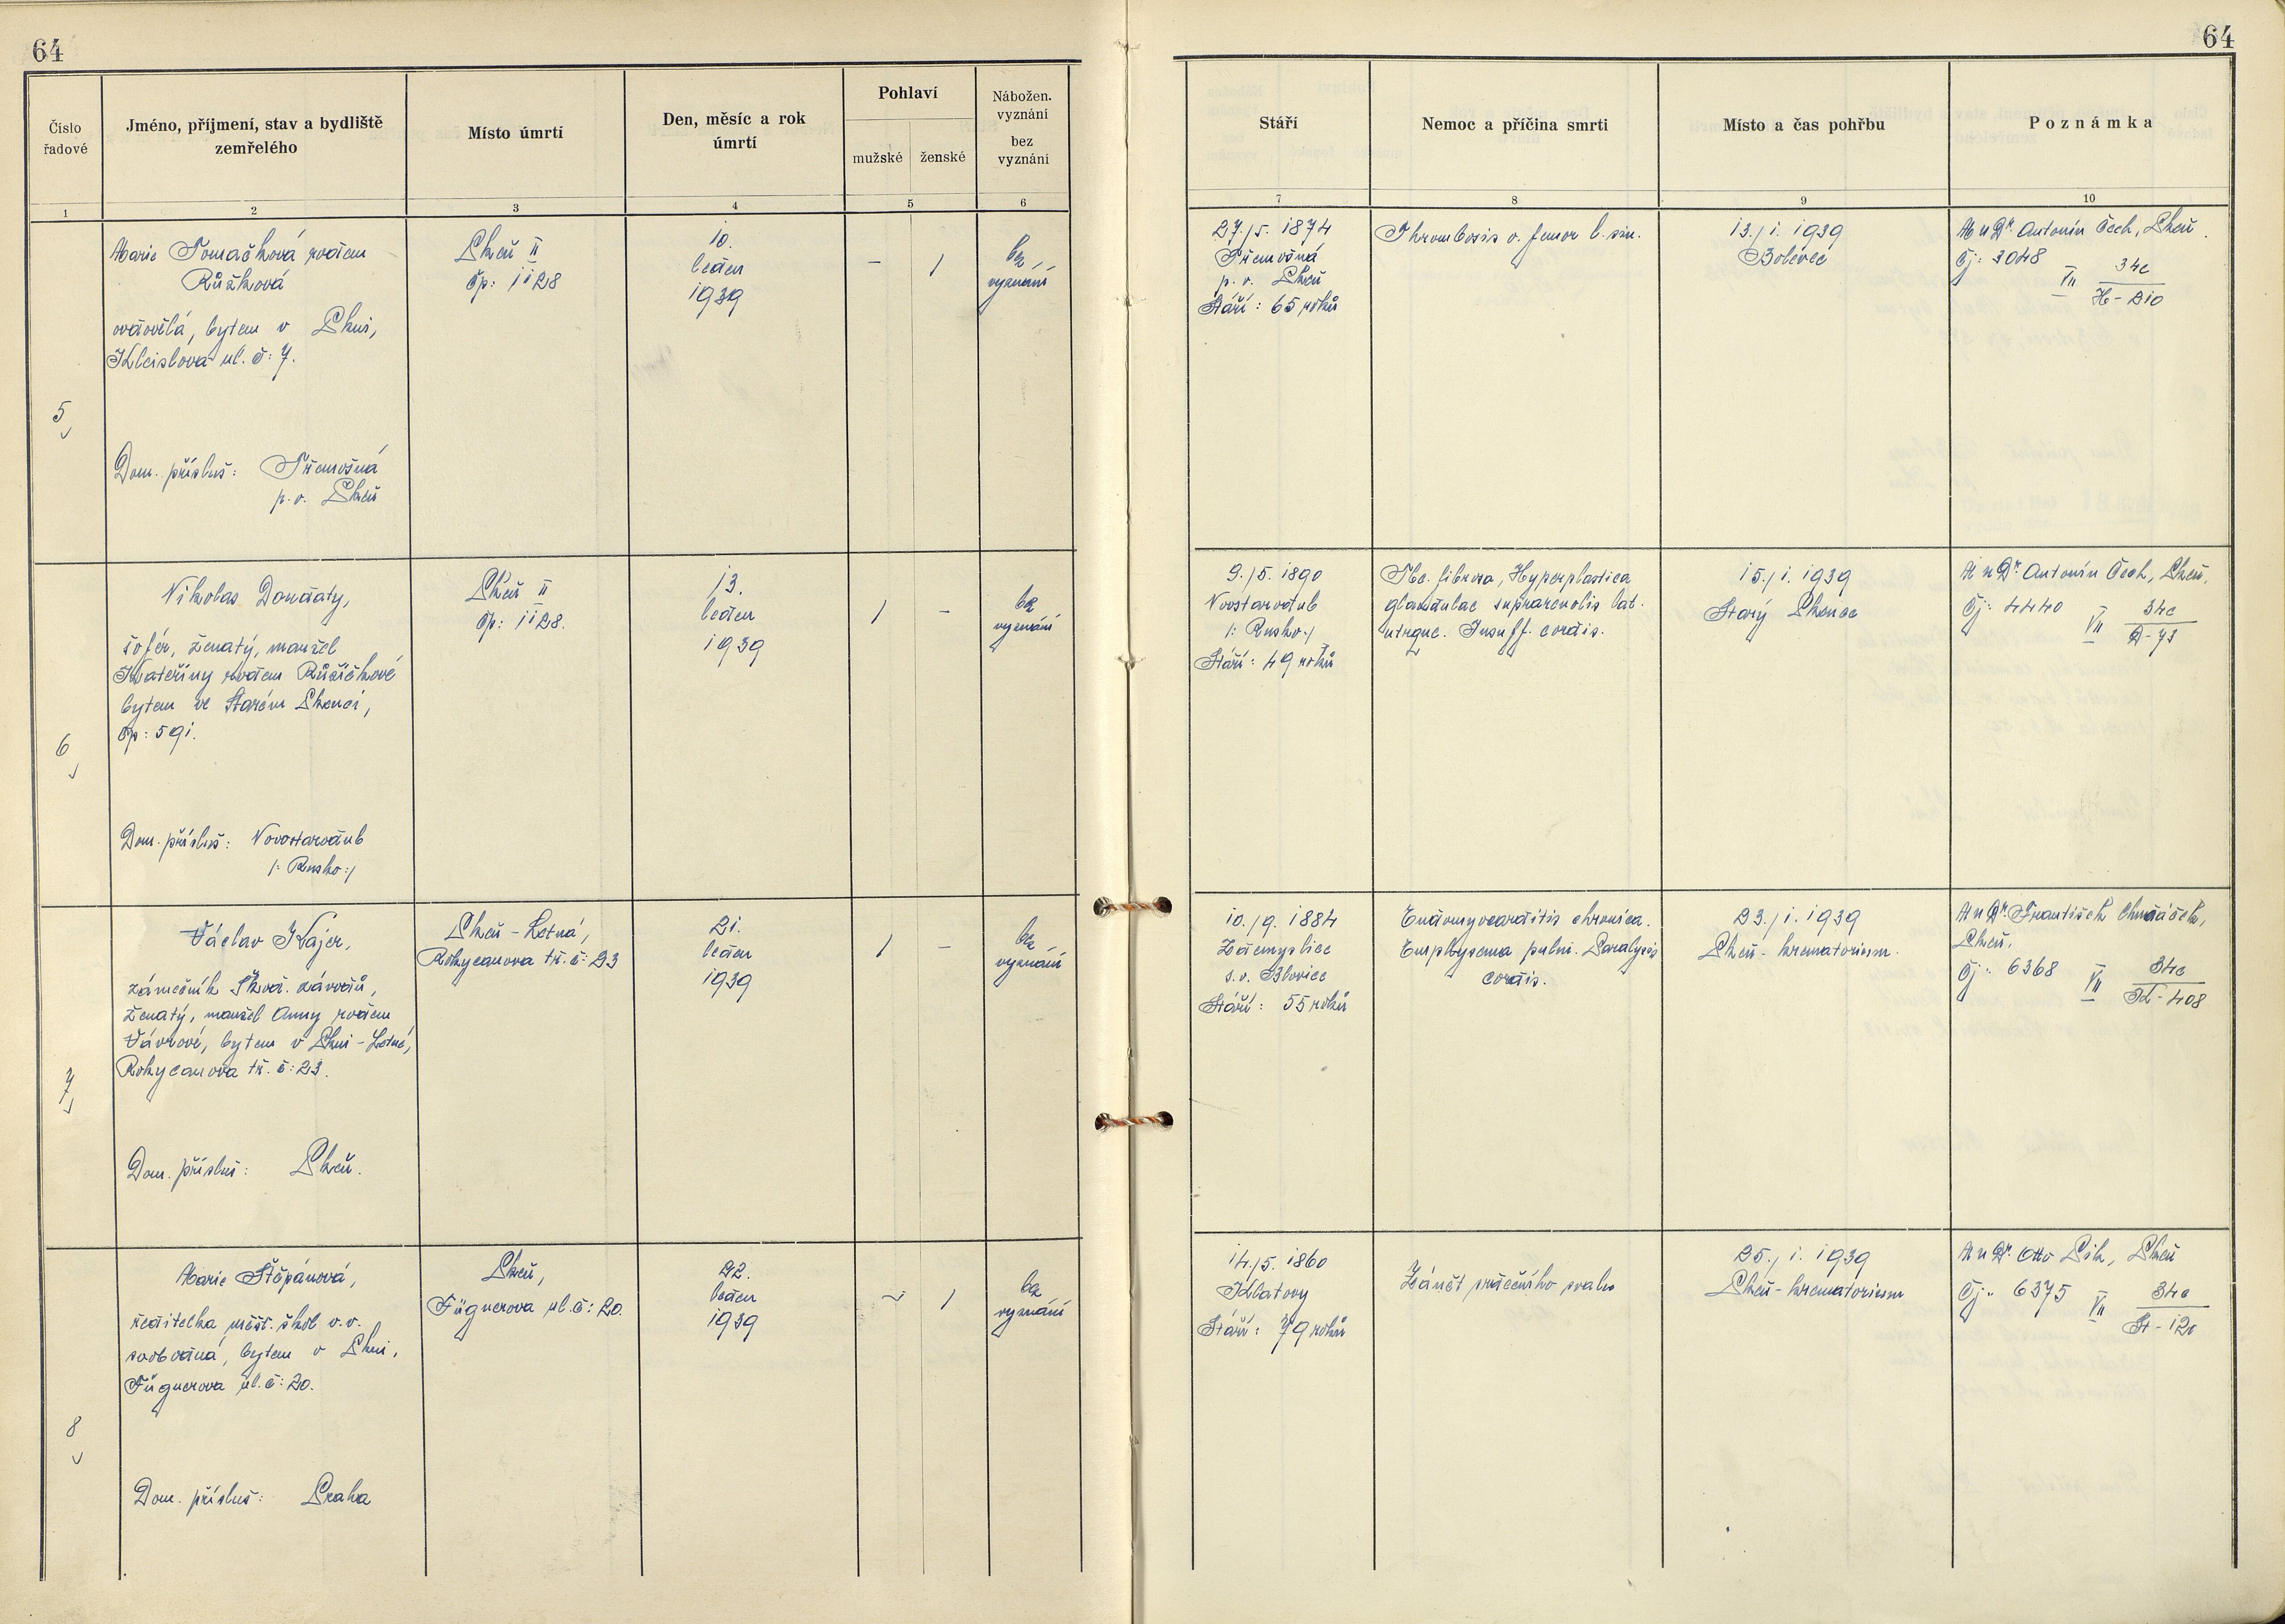 64
64
Číslo řadové
Jméno, příjmení, stav a bydliště zemřelého
Místo úmrtí
Den, měsíc a rok úmrtí
Pohlaví
mužské
ženské
Nábožen. vyznání
bez vyznání
Stáří
Nemoc a příčina smrti
Místo a čas pohřbu
Poznámka
1
2
3
4
5
6
7
8
9
10
5
Marie Tomašková rodem
Růžková
ovdovělá, bytem v Plzni,
Kleislova ul. č: 7.
Dom. přísluš: Třemošná
p. o. Plzeň
Plzeň II
čp: 1128
10.
leden
1939
-
/
bez
vyznání
27./5. 1874
Třemošná
p. o. Plzeň
Stáří: 65 roků
Thrombosis v. femor l. sin.
13./1. 1939
Bolevec
MuDr. Antonín Čech, Plzeň.
Čj: 3048 VII 34c
H-210
6
Nikolas Dondaty,
šofér, ženatý, manžel
Kateřiny rodem Růžičkové
bytem ve Starém Plzenci,
čp: 591.
Dom. příslus: Novostarodub
/: Rusko:/
Plzeň II
čp: 1128.
13.
leden
1939
/
-
bez
vyznání
9./5. 1890
Novostarodub
/: Rusko:/
Stáří: 49 roků
Tbc. fibrosa, Hyperplastica
glandulae suprarenolis lat.
utrque. Insuff. cordis.
15./1. 1939
Starý Plzenec
MuDr. Antonín Čech, Plzeň.
Čj: 4440 VII 34c
D-73
7
Václav Kajer,
zámečník Škod. závodů,
ženatý, manžel Anny rodem
Vávrové, bytem v Plzni-Letné,
Rokycanova tř. č: 23.
Dom. přísluš: Plzeň.
Plzeň-Letná,
Rokycanova tř. č: 23
21.
leden
1939
/
-
bez
vyznání
10./9. 1884
Zdemyslice
s. o. Blovice
Stáří: 55 roků
Endomyocarditis chronica.
Emphysema pulm. Paralysis
cordis.
23./1. 1939
Plzeň-krematorium.
MuDr. František Chudáček,
Plzeň.
Čj: 6368 VII 34c
K-408
8
Marie Štěpánová,
ředitelka měšť. škol v. v.
svobodná, bytem v Plzni,
Fügnerova ul. č: 20.
Dom. příslus: Praha
Plzeň,
Fügnerova ul. č: 20.
22.
leden
1939
-
/
bez
vyznání
14./5. 1860
Klatovy
Stáří: 79 roků
Zánět srdečního svalu
25./1. 1939
Plzeň-krematorium
MuDr. Otto Pik, Plzeň
Čj: 6375 VII 34c
St-120